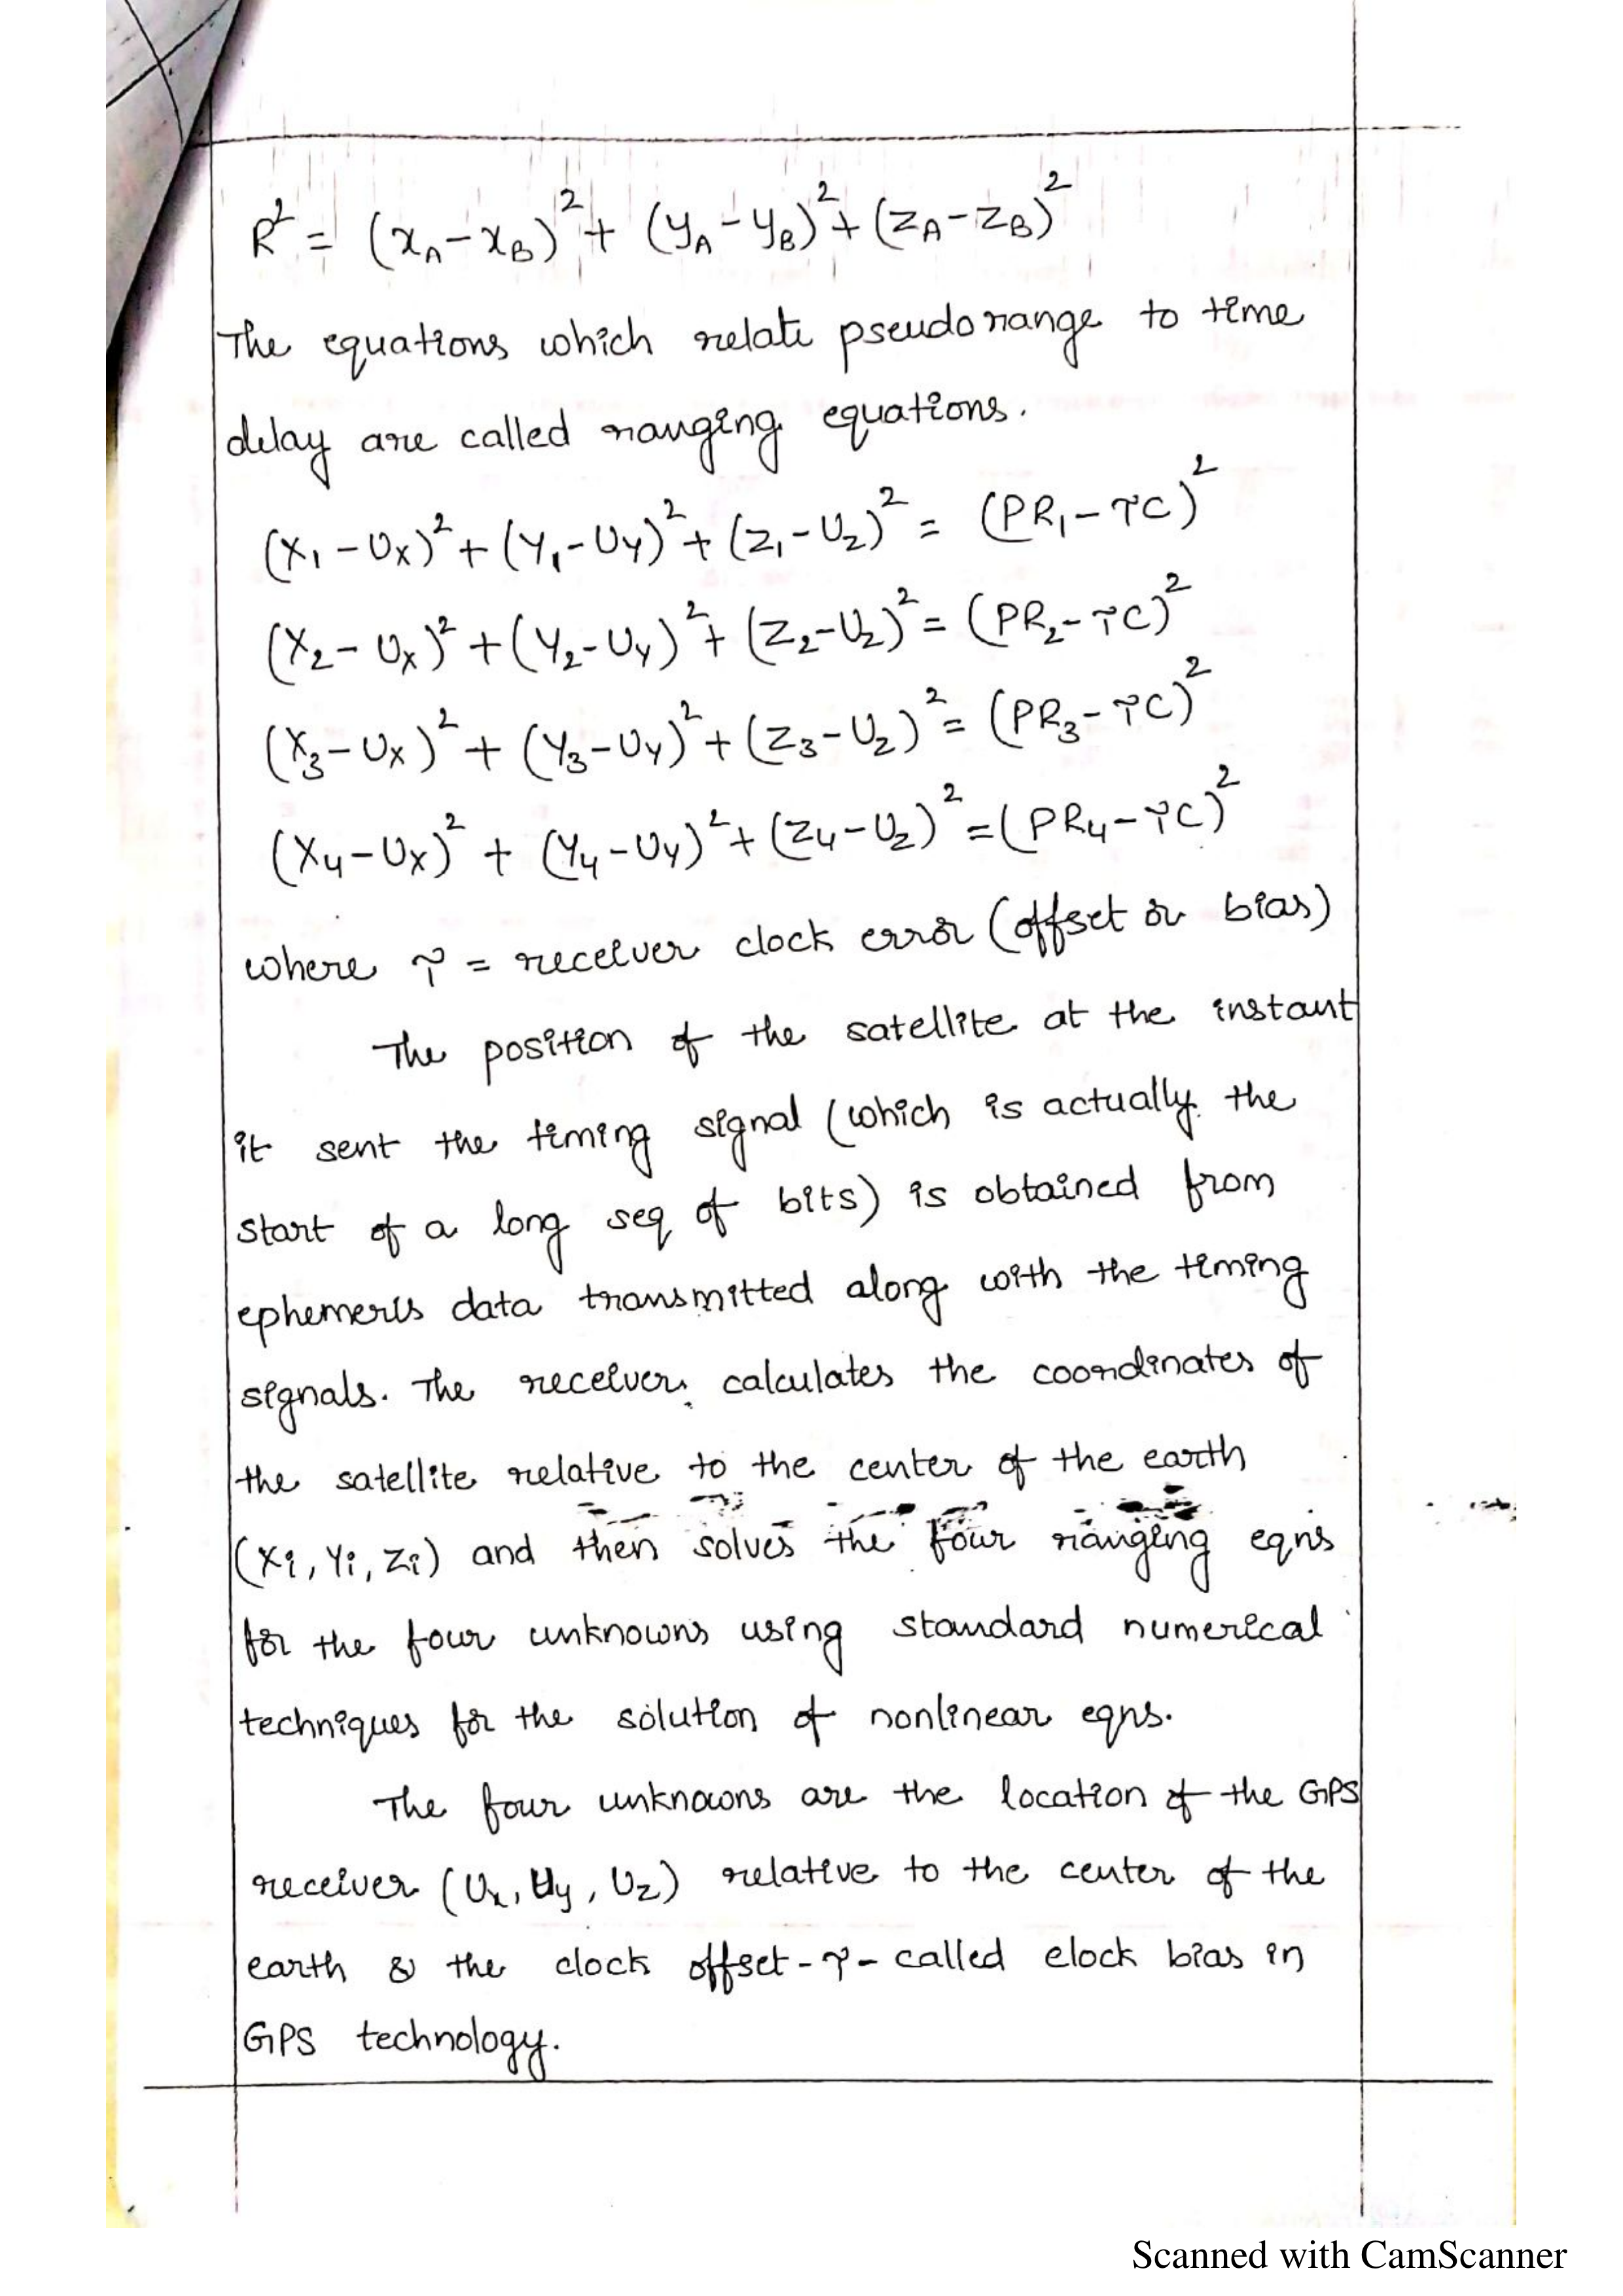 R² = (x_A - x_B)² + (y_A - y_B)² + (z_A - z_B)²
The equations which relate pseudorange to time
delay are called ranging equations.
(X₁ - U_X)² + (Y₁ - U_Y)² + (Z₁ - U_Z)² = (PR₁ - τC)²
(X₂ - U_X)² + (Y₂ - U_Y)² + (Z₂ - U_Z)² = (PR₂ - τC)²
(X₃ - U_X)² + (Y₃ - U_Y)² + (Z₃ - U_Z)² = (PR₃ - τC)²
(X₄ - U_X)² + (Y₄ - U_Y)² + (Z₄ - U_Z)² = (PR₄ - τC)²
where τ = receiver clock error (offset or bias)
The position of the satellite at the instant
it sent the timing signal (which is actually the
start of a long seq of bits) is obtained from
ephemeris data transmitted along with the timing
signals. The receiver calculates the coordinates of
the satellite relative to the center of the earth
(Xi, Yi, Zi) and then solves the four ranging eqns
for the four unknowns using standard numerical
techniques for the solution of nonlinear eqns.
The four unknowns are the location of the GPS
receiver (Ux, Uy, Uz) relative to the center of the
earth & the clock offset - τ - called clock bias in
GPS technology.
Scanned with CamScanner